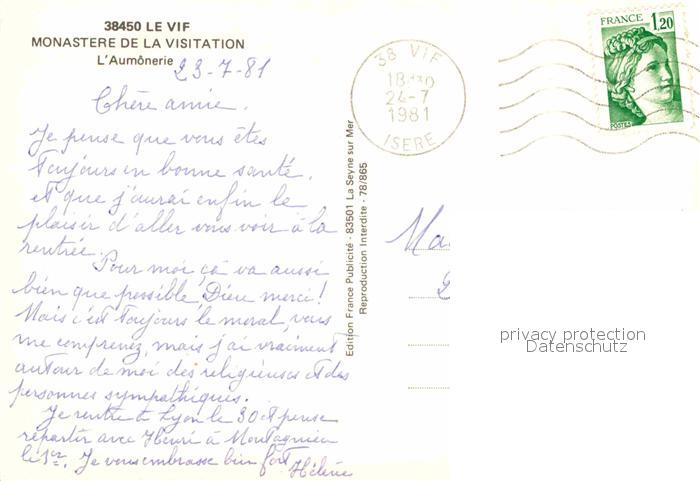 38450 LE VIF
MONASTERE DE LA VISITATION
L'Aumônerie
23-7-81
Chère amie.
Je pense que vous êtes
toujours en bonne santé,
et que j'aurai enfin le
plaisir d'aller vous voir à la
rentrée.
Pour moi, çà va aussi
bien que possible, Dieu merci!
Mais c'est toujours le moral, vous
me comprenez, mais j'ai vraiment
autour de moi des religieuses et des
personnes sympathiques.
Je rentre à Lyon le 30 et pense
repartir avec Henri à Montagnieu
le 1er. Je vous embrasse bien fort
Hélène
Edition France Publicité - 83501 La Seyne sur Mer
Reproduction Interdite - 78/865
38 VIF
18H30
24-7
1981
ISERE
FRANCE
1,20
POSTES
Ma
privacy protection
Datenschutz